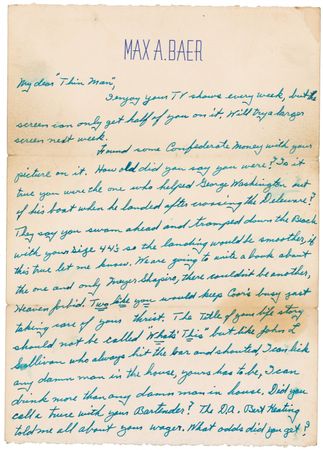 MAX A. BAER
My dear "Thin Man",
I enjoy your TV shows every week, but the
screen can only get half of you on it. Will try a larger
screen next week.
Found some Confederate Money with your
picture on it. How old did you say you were? Is it
true you were the one who helped George Washington out
of his boat when he landed after crossing the Delaware?
They say you swam ahead and tramped down the Bank
with your size 44's so the landing would be smoother, if
this true let me know. We are going to write a book about
the one and only Meyer Shapiro, there couldn't be another,
Heaven forbid. Two like you would keep Coors busy just
taking care of your thirst. The Title of your life story
should not be called "What's This" but like John L
Sullivan who always hit the bar and shouted, I can lick
any damn man in the house, yours has to be, I can
drink more than any damn man in house. Did you
call a truce with your Bartender? The D.A. Bert Keating
told me all about your wager. What odds did you get?